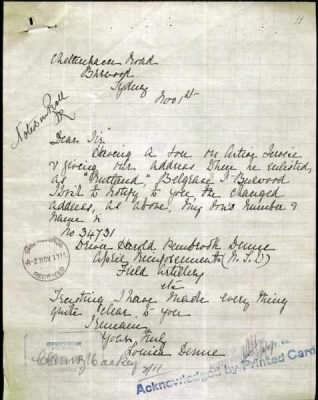 Cheltenham Road
Burwood
Sydney
Nov 1st
Noted on Roll
Dear Sir
Having a Son on Active Service
& giving our address when he enlisted
as "Rutland," Belgrave St Burwood
I wish to notify to you the changed
address, as above. My son's number &
name is
No 34731
Driver Harold Pembrook Denne
April Reinforcements (N.S.W)
Field Artillery
etc
Trusting I have made every thing
quite clear to you
I remain
Yours truly
Louisa Denne
2 NOV 191
Acknowledged by Printed Card